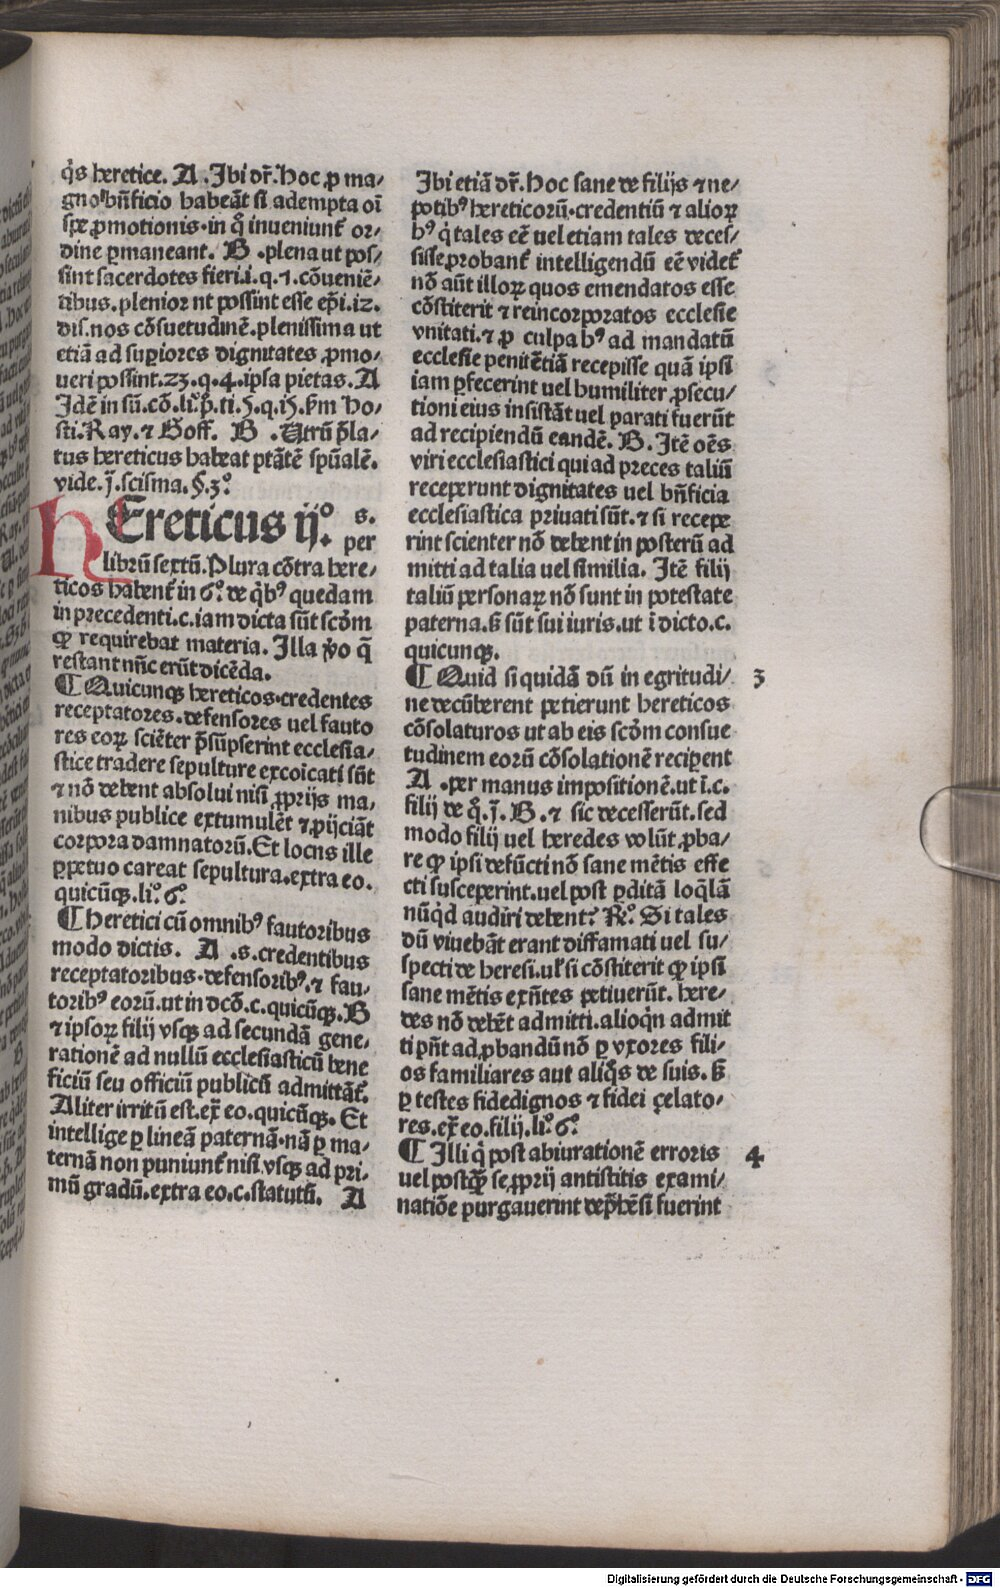 q̇s heretice. A .Ibi dr̄. Hoc ꝓ ma-
gno bn̄ficio habeāt si adempta oī
spe ꝓmotionis.in q̇ inueniunt̄ or-
dine ꝑmaneant. B .plena ut pos/
sint sacerdotes fieri.i.q.7.cōueniē/
tibus.plenior nt possint esse ep̄i.iz.
dis.nos cōsuetudinē.plenissima ut
etiā ad suꝑiores dignitates ꝓmo/
ueri possint.23.q.4.ipsa pietas. A
Idē in sū.cō.li.p̄.ti.5.q.ij.ẜm Ho/
sti.Ray.⁊ Goff. B .Utrū p̄la/
tus hereticus habeat ptātē spūalē.
vide.j̄.scisma.§.3°
HEreticus ij°. s.
per
librū sextū.Plura cōtra here/
ticos habent̄ in 6°.de q̇bꝰ quedam
in precedenti.c.iam dicta sūt scḋm
ꝙ requirebat materia. Illa v̊o q̄
restant nūc erūt dicēda.
¶ Quicunqꝫ hereticos.credentes
receptatores.defensores uel fauto
res eoꝝ sciēter p̄sūpserint ecclesia/
stice tradere sepulture excōicati sūt
⁊ nō debent absolui nisi ꝓprijs ma,
nibus publice extumulēt ⁊ ꝓijciāt
corpora damnatorū.Et locns ille
ꝑpetuo careat sepultura.extra eo.
quicūqꝫ.li°.6°
¶ Heretici cū omnibꝰ fautoribus
modo dictis. A .s.credentibus
receptatoribus.defensoribꝰ.⁊ fau,
toribꝰ eorū.ut in dcō.c.quicūqꝫ.B
⁊ ipsoꝝ filij vsqꝫ ad secundā gene,
rationē ad nullū ecclesiasticū bene
ficiū seu officiū publicū admittāt̄.
Aliter irritū est.ex̄ eo.quicūqꝫ. Et
intellige ꝑ lineā paternā.nā ꝑ ma,
ternā non puniunt̄ nisi vsqꝫ ad pri,
mū gradū.extra eo.c.statutū. A
Ibi etiā dr̄. Hoc sane de filijs ⁊ ne/
potibꝰ hereticorū.credentiū ⁊ alioꝝ
hꝰ q̇ tales eē uel etiam tales deces/
sisse ꝓbant̄ intelligendū eē videt̄
nō aūt illoꝝ quos emendatos esse
cōstiterit ⁊ reincorporatos ecclesie
vnitati.⁊ ꝓ culpa hꝰ ad mandatū
ecclesie penitētiā recepisse quā ipsi
iam ꝑfecerint uel humiliter ꝓsecu/
tioni eius insistāt uel parati fuerūt
ad recipiendū eandē. B. Itē oēs
viri ecclesiastici qui ad preces taliū
receperunt dignitates uel bn̄ficia
ecclesiastica priuati sūt.⁊ si recepe
rint scienter nō debent in posterū ad
mitti ad talia uel similia. Itē filij
taliū personaꝝ nō sunt in potestate
paterna.ẜ sūt sui iuris.ut ī dicto.c.
quicunqꝫ.
¶ Quid si quidā dū in egritudi/ 3
ne decūberent petierunt hereticos
cōsolaturos ut ab eis scḋm consue
tudinem eorū cōsolationē reciꝑent
A .per manus impositionē.ut ī.c.
filij de q̇.j̄. B.⁊ sic decesserūt.sed
modo filij uel heredes volūt ꝓba/
re ꝙ ipsi defūcti nō sane mētis effe
cti susceperint.uel post ꝑditā loq̄lā
nūq̇d audiri debent? R°. Si tales
dū viuebāt erant diffamati uel su/
specti de heresi.ul̄ si cōstiterit ꝙ ipsi
sane mētis exn̄tes petiuerūt. here/
des nō debēt admitti.alioq̇n admit
ti pn̄t ad ꝓbandū nō ꝑ vxores fili-
os familiares aut aliq̇s de suis. ẜ
ꝑ testes fidedignos ⁊ fidei çelato/
res.ex̄ eo.filij.li°.6°.
¶ Illi q̇ post abiurationē erroris 4
uel postꝙ̄ se ꝓprij antistitis exami/
natiōe purgauerint dep̄hēsi fuerint
Digitalisierung gefördert durch die Deutsche Forschungsgemeinschaft - DFG